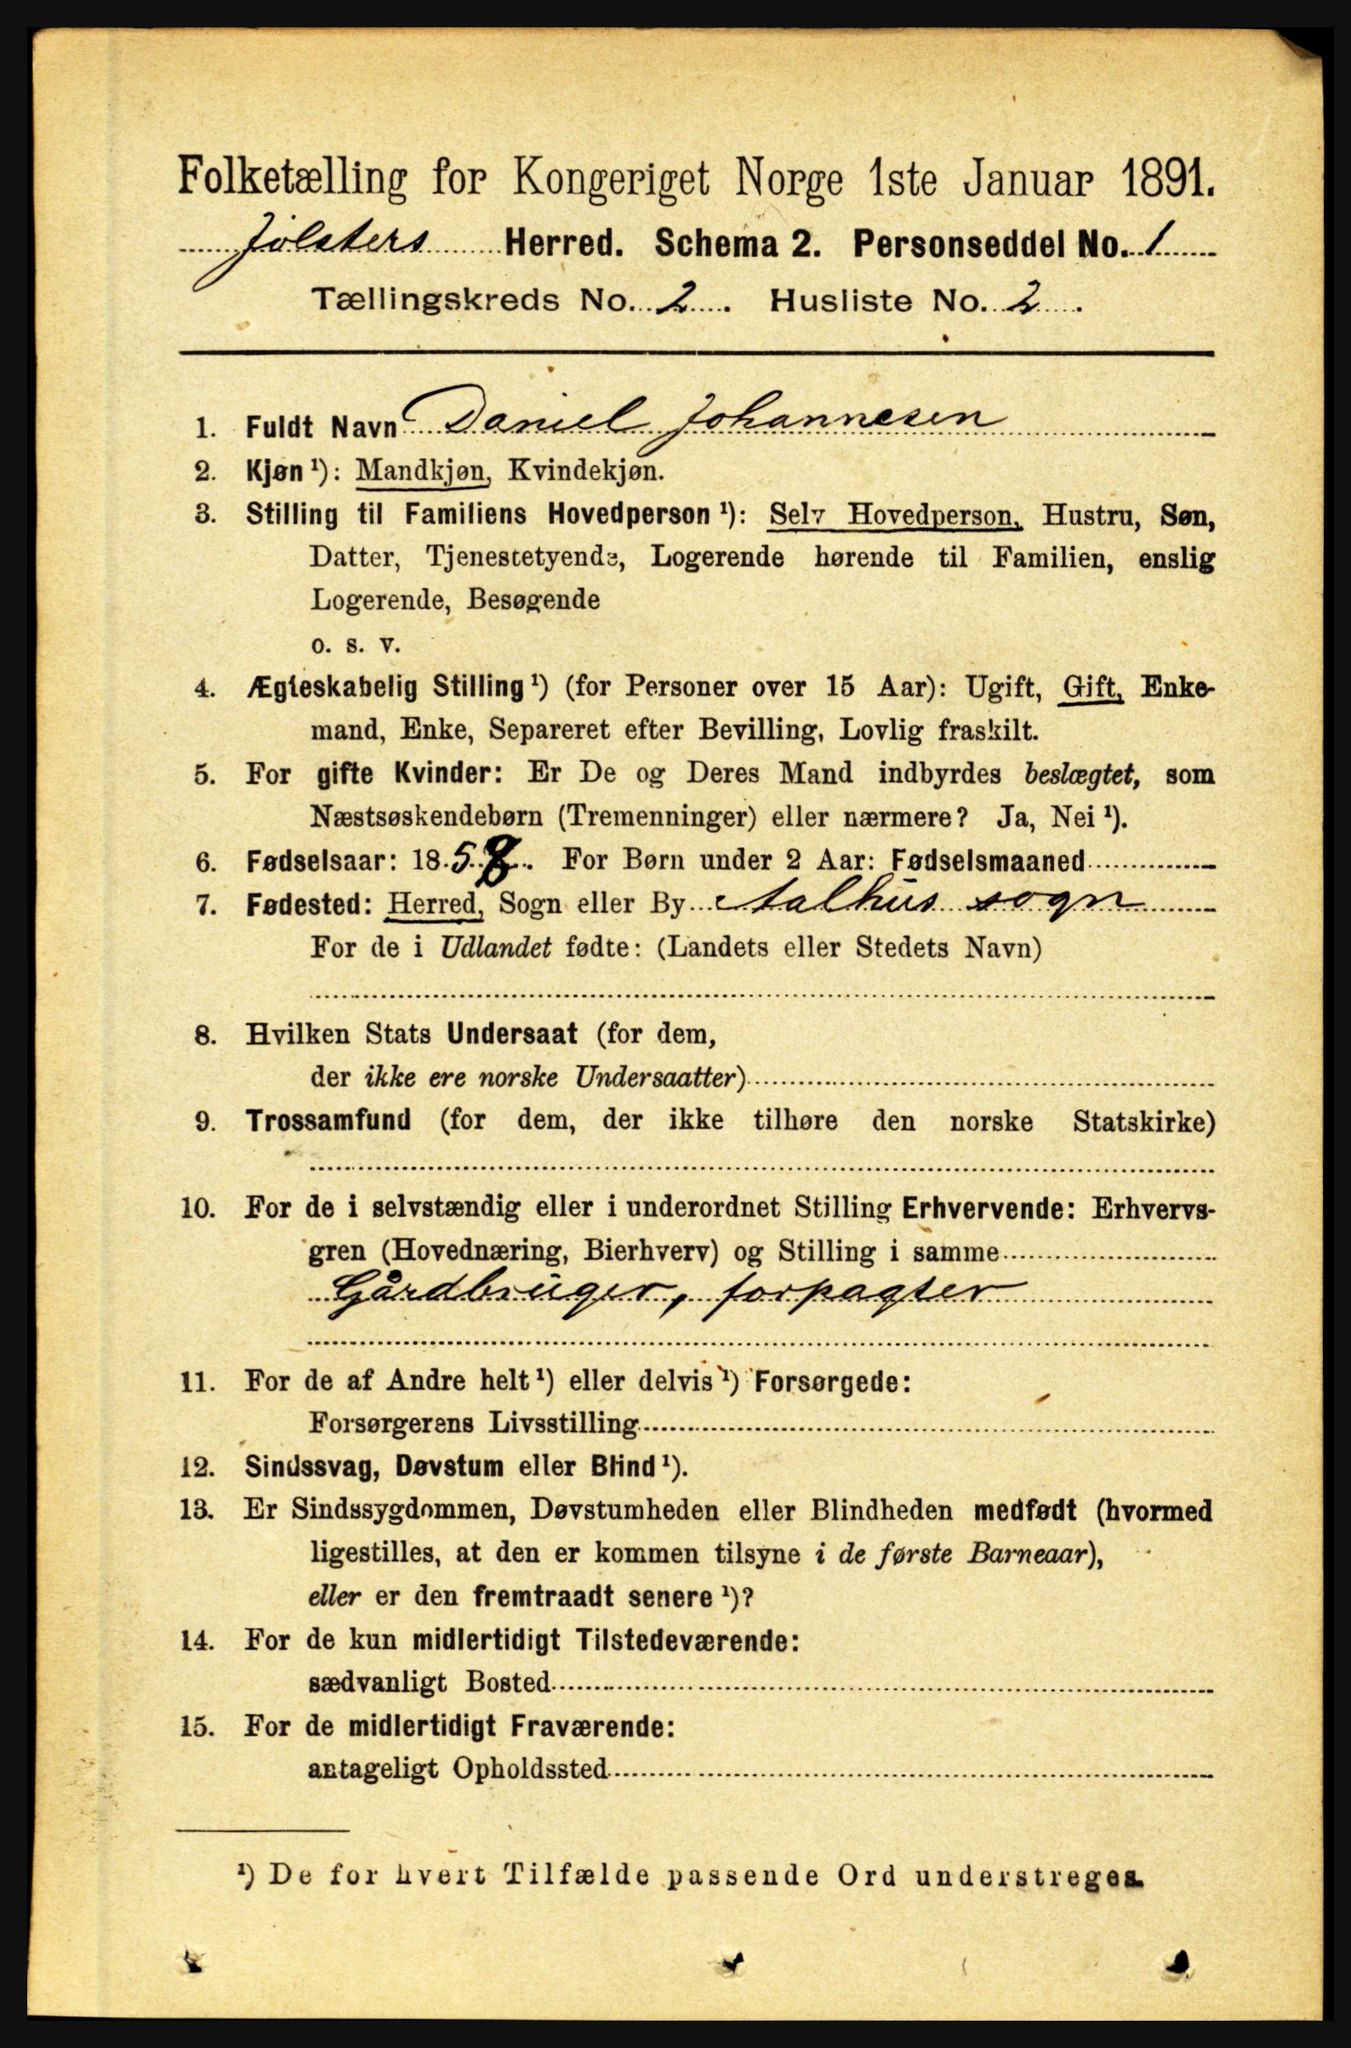 Folketælling for Kongeriget Norge 1ste Januar 1891.
Jølsters Herred. Schema 2. Personseddel No. 1
Tællingskreds No. 2. Husliste No. 2.
1. Fuldt Navn Daniel Johannesen
2. Kjøn ¹): Mandkjøn, Kvindekjøn.
3. Stilling til Familiens Hovedperson ¹): Selv Hovedperson, Hustru, Søn,
Datter, Tjenestetyende, Logerende hørende til Familien, enslig
Logerende, Besøgende
o. s. v.
4. Ægteskabelig Stilling ¹) (for Personer over 15 Aar): Ugift, Gift, Enke-
mand, Enke, Separeret efter Bevilling, Lovlig fraskilt.
5. For gifte Kvinder: Er De og Deres Mand indbyrdes beslægtet, som
Næstsøskendebørn (Tremenninger) eller nærmere? Ja, Nei ¹).
6. Fødselsaar: 1858. For Børn under 2 Aar: Fødselsmaaned
7. Fødested: Herred, Sogn eller By Aalhus sogn
For de i Udlandet fødte: (Landets eller Stedets Navn)
8. Hvilken Stats Undersaat (for dem,
der ikke ere norske Undersaatter)
9. Trossamfund (for dem, der ikke tilhøre den norske Statskirke)
10. For de i selvstændig eller i underordnet Stilling Erhvervende: Erhvervs-
gren (Hovednæring, Bierhverv) og Stilling i samme
Gårdbruger, forpagter
11. For de af Andre helt ¹) eller delvis ¹) Forsørgede:
Forsørgerens Livsstilling
12. Sindssvag, Døvstum eller Blind ¹).
13. Er Sindssygdommen, Døvstumheden eller Blindheden medfødt (hvormed
ligestilles, at den er kommen tilsyne i de første Barneaar),
eller er den fremtraadt senere ¹)?
14. For de kun midlertidigt Tilstedeværende:
sædvanligt Bosted
15. For de midlertidigt Fraværende:
antageligt Opholdssted
¹) De for hvert Tilfælde passende Ord understreges.